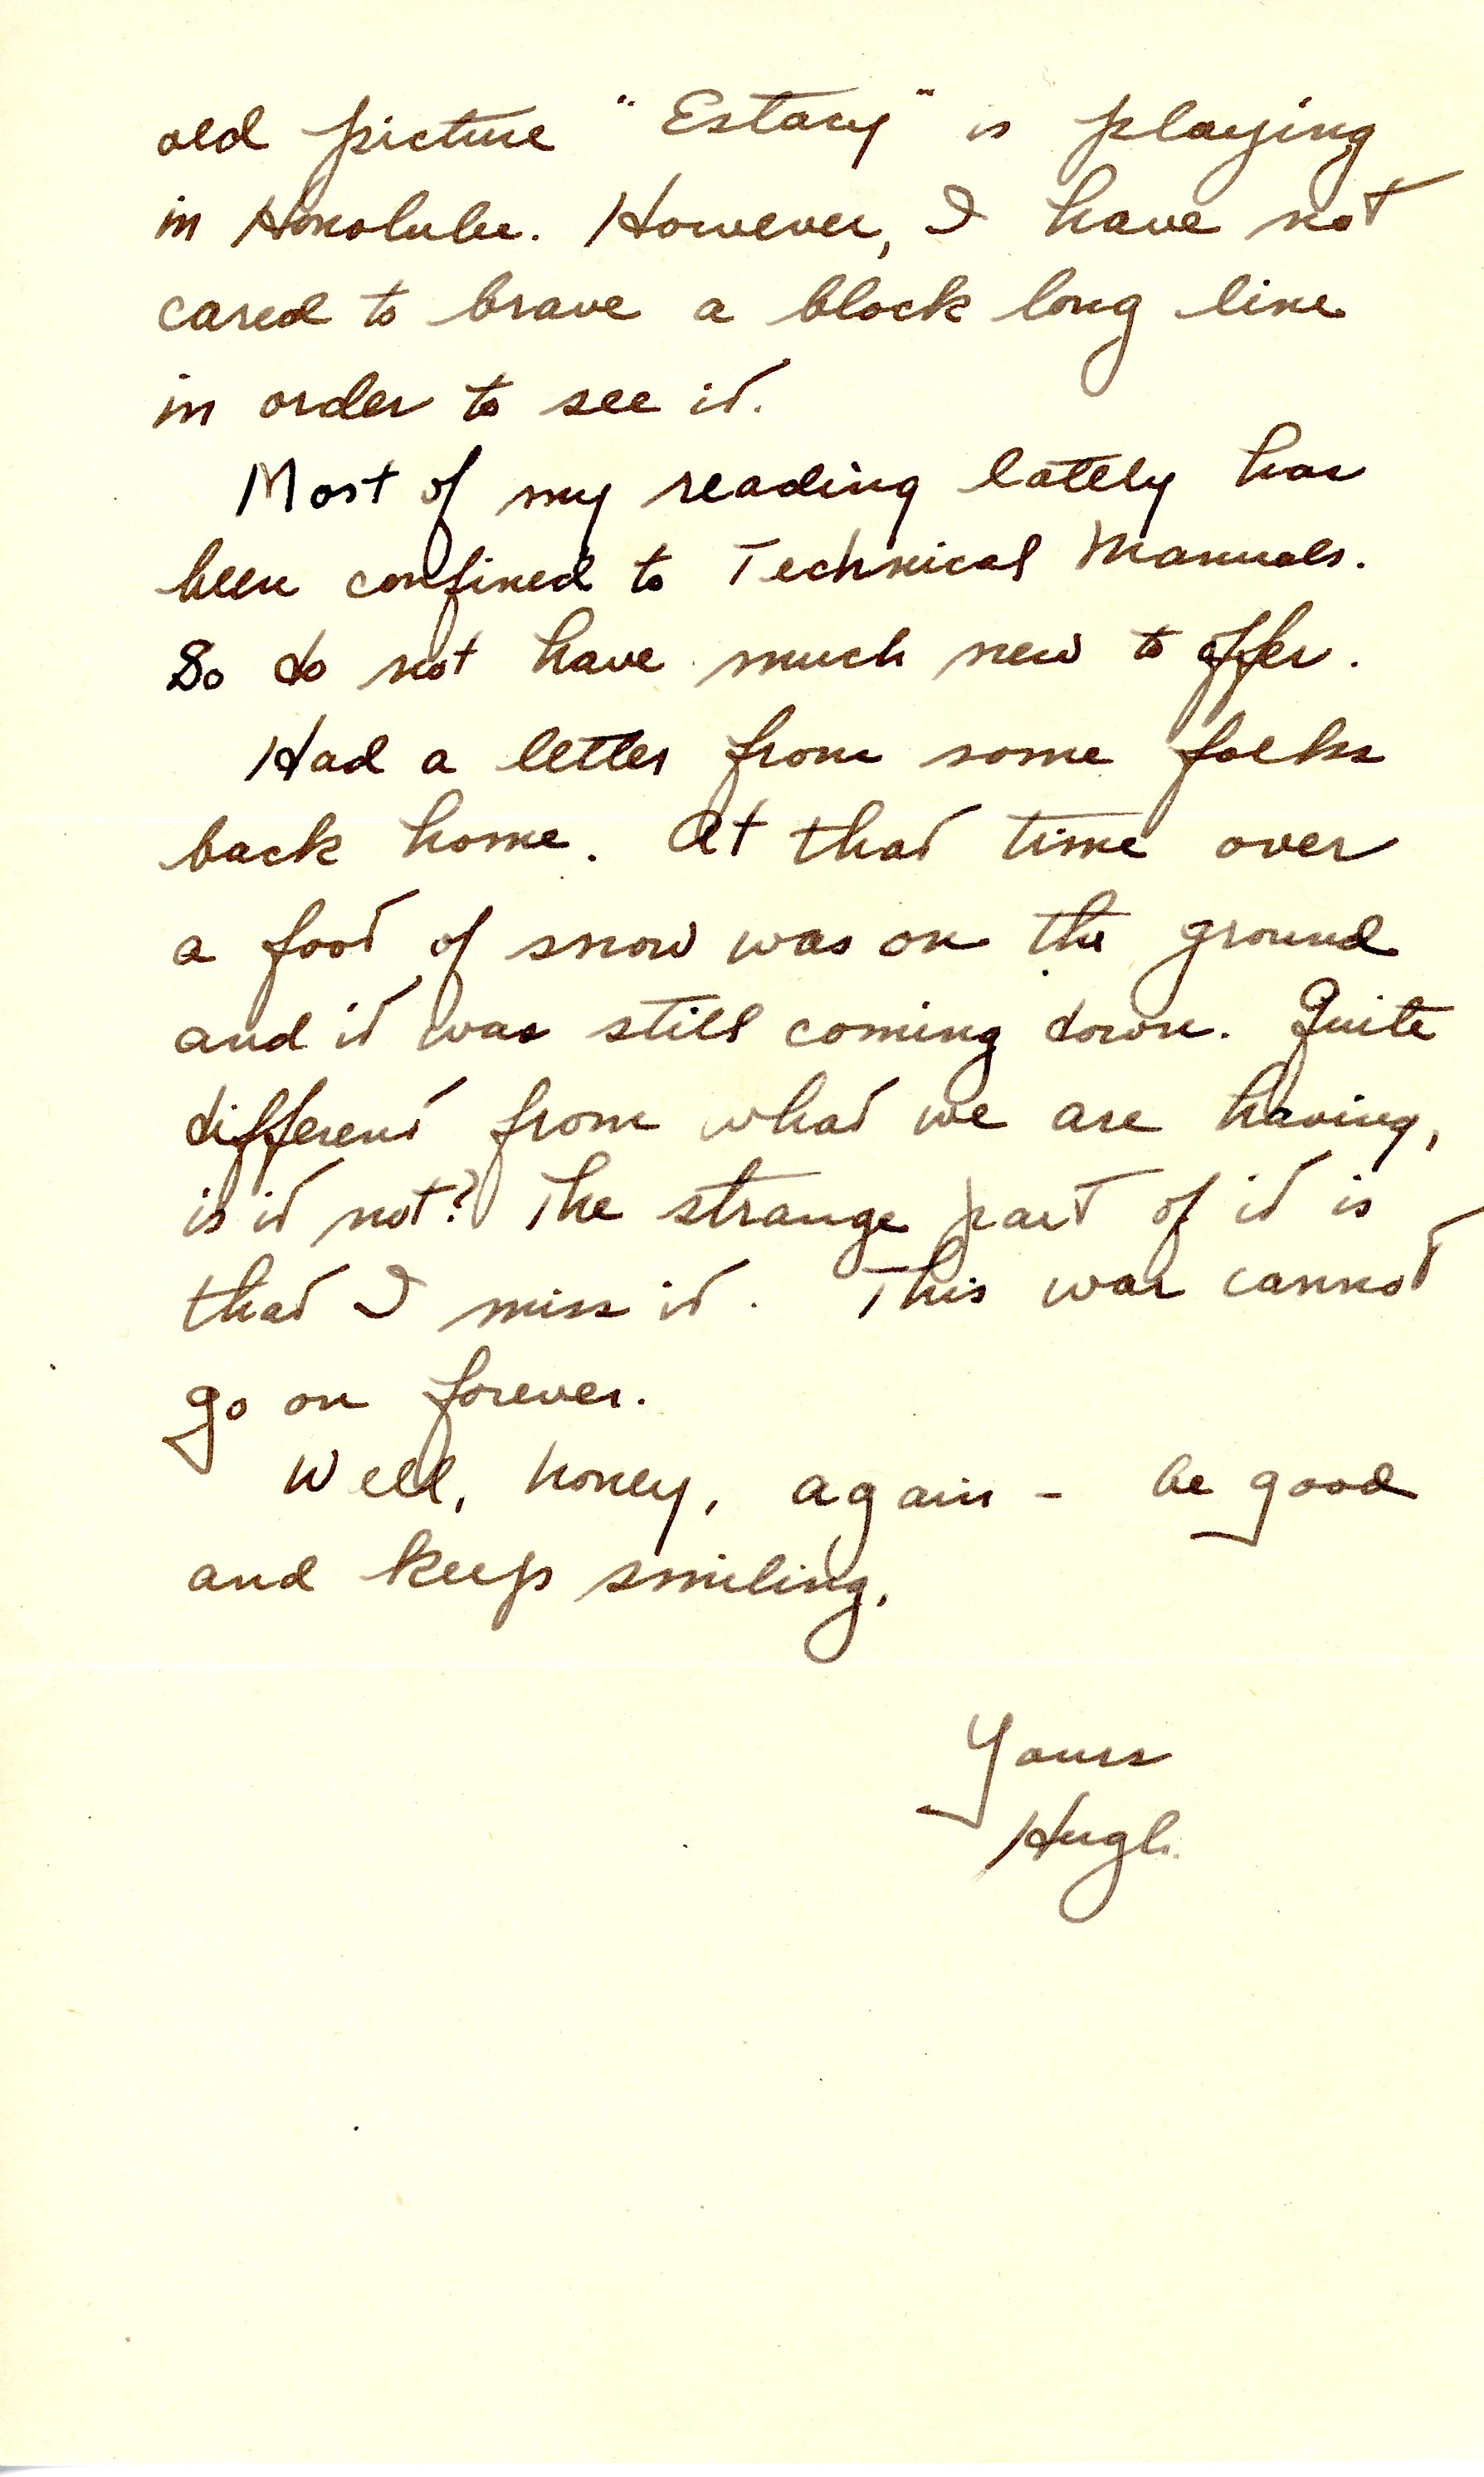 old picture "Estacy" is playing
in Honolulu. However, I have not
cared to brave a block long line
in order to see it.
Most of my reading lately has
been confined to Technical Manuals.
So do not have much new to offer.
Had a letter from some folks
back home. At that time over
a foot of snow was on the ground
and it was still coming down. Quite
different from what we are having,
is it not? The strange part of it is
that I miss it. This war cannot
go on forever.
Well, honey, again - be good
and keep smiling.
Yours
Hugh.